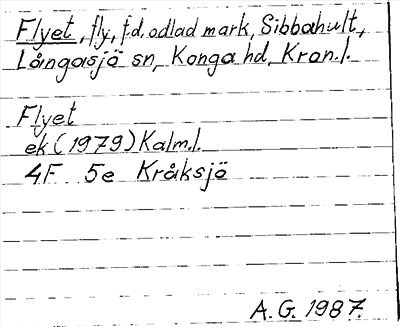 Flyet, fly, f.d. odlad mark, Sibbahult,
Långasjö sn, Konga hd, Kron.l.
Flyet
ek (1979) Kalm.l.
4F 5e Kråksjö
A.G. 1987.